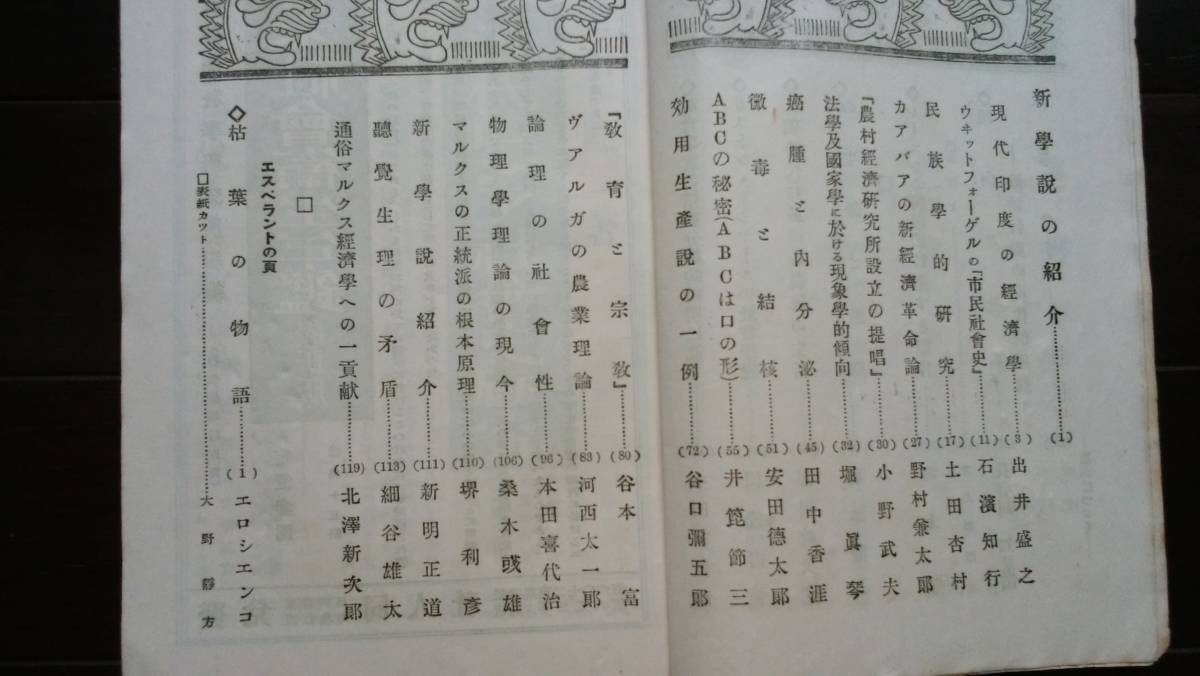 新學說の紹介…………(1)
現代印度の經濟學…………(3) 出井盛之
ウヰットフォーゲルの『市民社會史』…………(11) 石濱知行
民族學的硏究…………(17) 土田杏村
カアバアの新經濟革命論…………(27) 野村兼太郎
『農村經濟硏究所設立の提唱』…………(30) 小野武夫
法學及國家學に於ける現象學的傾向…………(32) 堀眞琴
癌腫と內分泌…………(45) 田中香涯
黴毒と結核…………(51) 安田德太郎
ABCの秘密(ABCは口の形)…………(55) 井箆節三
効用生產說の一例…………(72) 谷口彌五郎
『敎育と宗敎』…………(80) 谷本富
ヴアルガの農業理論…………(83) 河西太一郎
論理の社會性…………(96) 本田喜代治
物理學理論の現今…………(106) 桑木彧雄
マルクスの正統派の根本原理…………(110) 堺利彥
新學說紹介…………(111) 新明正道
聽覺生理の矛盾…………(113) 細谷雄太
通俗マルクス經濟學への一貢献…………(119) 北澤新次郎
□
エスペラントの頁
◇枯葉の物語…………(1) エロシエンコ
□表紙カット…………大野靜方